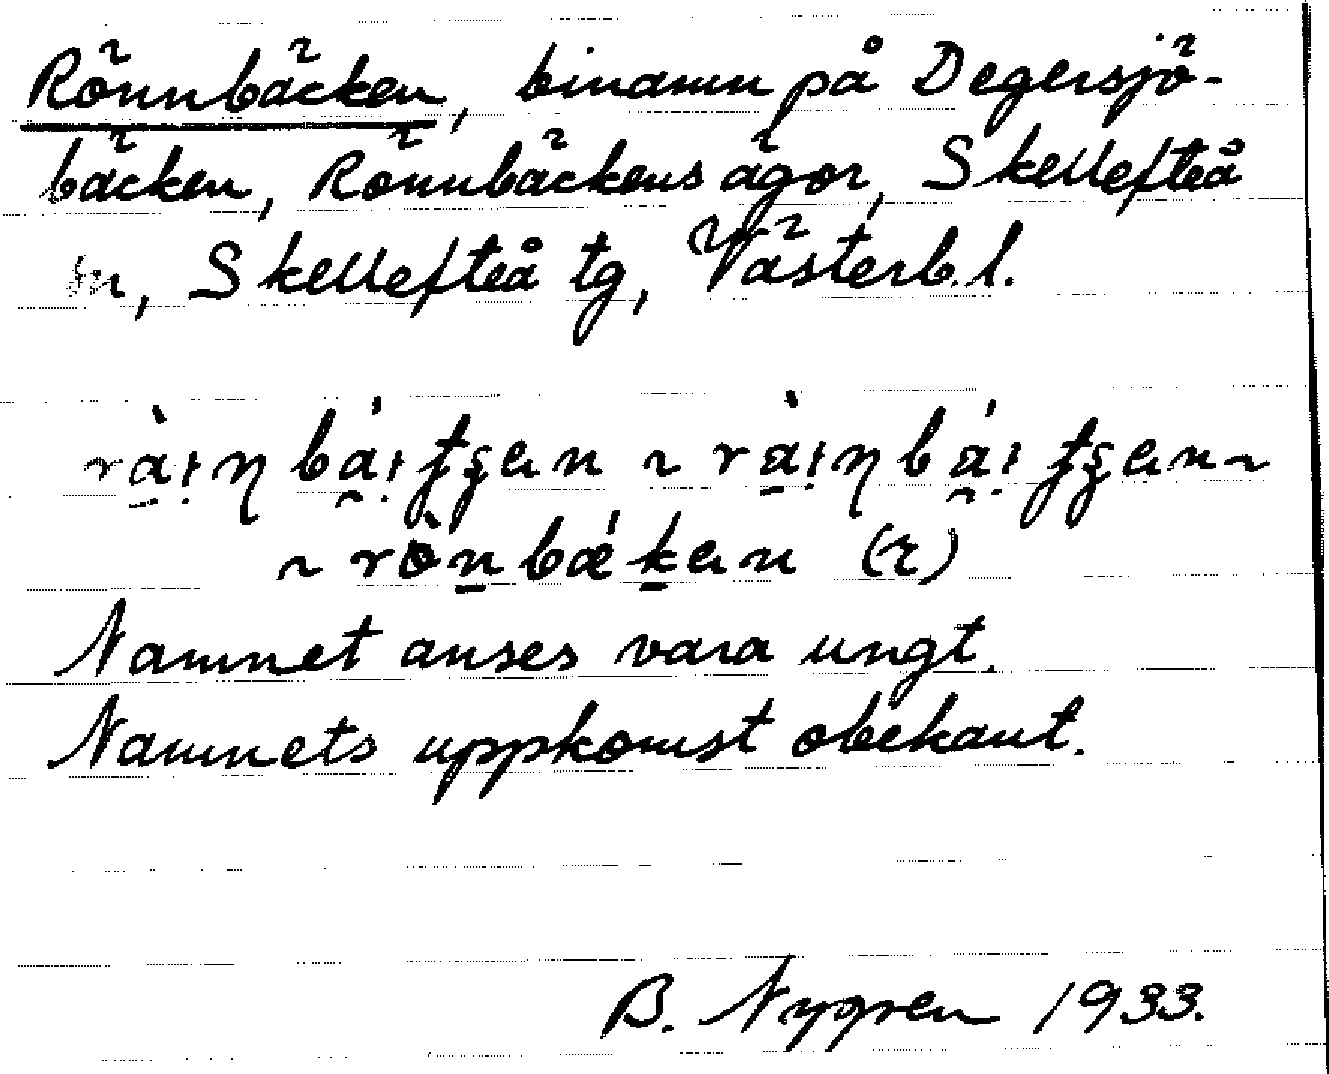 Rönnbäcken, binamn på Degersjö-
bäcken, Rönnbäckens ägor, Skellefteå
sn, Skellefteå tg, Västerb. l.
~ rö̀nbǽkɐn (r)
Namnet anses vara ungt.
Namnets uppkomst obekant.
B. Nygren 1933.